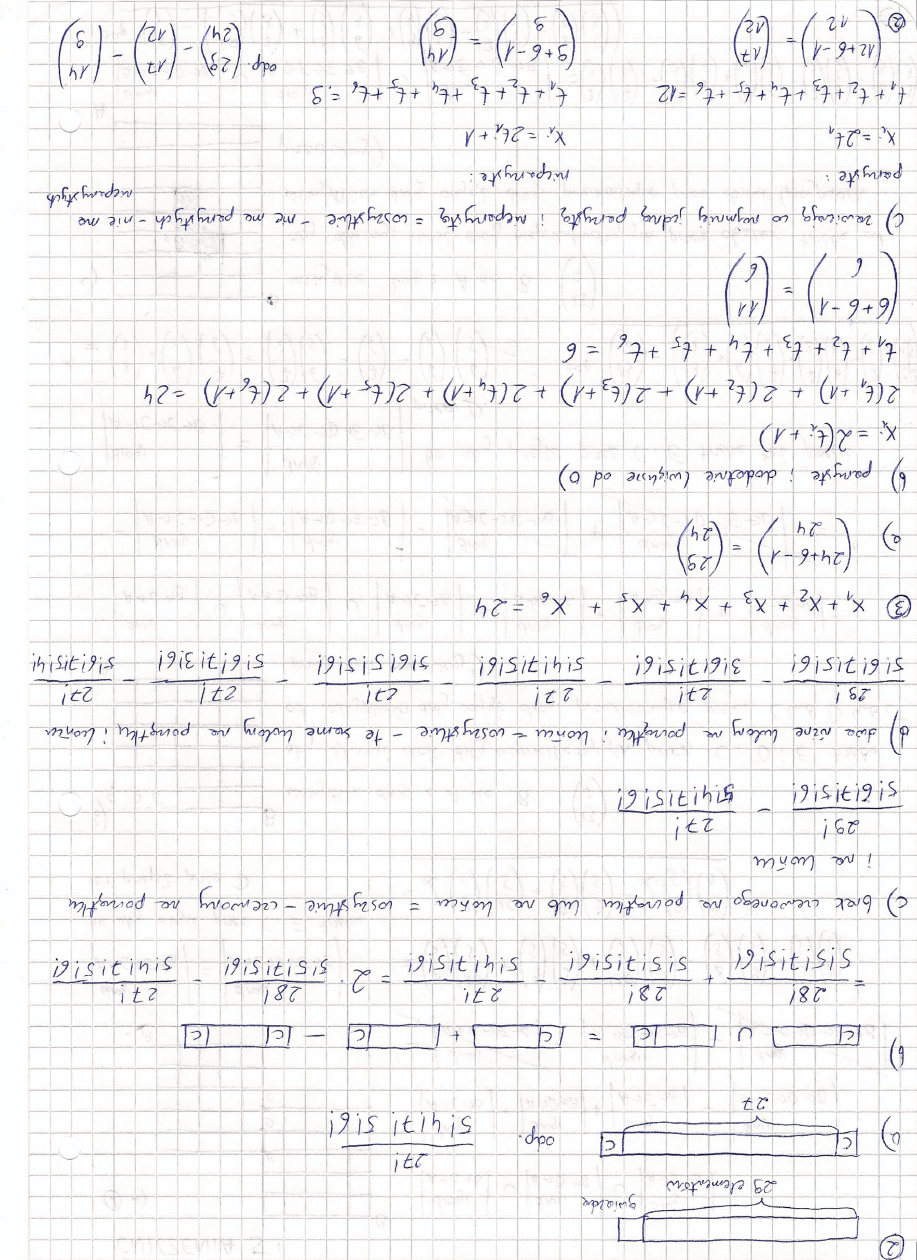 ②
29 elementów
a) C C 27 odp. 27!/(5!4!7!5!6!)
b) C ∪ C = C + C − C C
= 28!/(5!5!7!5!6!) + 28!/(5!5!7!5!6!) − 27!/(5!4!7!5!6!) = 2· 28!/(5!5!7!5!6!) − 27!/(5!4!7!5!6!)
c) brak czerwonego na początku lub na końcu = wszystkie − czerwony na początku
i na końcu
29!/(5!6!7!5!6!) − 27!/(5!4!7!5!6!)
d) dwa różne kolory na początku i końcu = wszystkie − te same kolory na początku i końcu
29!/(5!6!7!5!6!) − 27!/(3!6!7!5!6!) − 27!/(5!4!7!5!6!) − 27!/(5!6!5!5!6!) − 27!/(5!6!7!3!6!) − 27!/(5!6!7!5!4!)
③ x₁ + x₂ + x₃ + x₄ + x₅ + x₆ = 24
a) (24+6−1 24) = (29 24)
b) parzyste i dodatnie (większe od 0)
xᵢ = 2(tᵢ + 1)
2(t₁+1) + 2(t₂+1) + 2(t₃+1) + 2(t₄+1) + 2(t₅+1) + 2(t₆+1) = 24
t₁ + t₂ + t₃ + t₄ + t₅ + t₆ = 6
(6+6−1 6) = (11 6)
c) zawierają co najmniej jedną parzystą i nieparzystą = wszystkie − nie ma parzystych − nie ma
nieparzystych
parzyste: nieparzyste:
xᵢ = 2tᵢ xᵢ = 2tᵢ + 1
t₁ + t₂ + t₃ + t₄ + t₅ + t₆ = 12 t₁ + t₂ + t₃ + t₄ + t₅ + t₆ = 9
② (12+6−1 12) = (17 12) (9+6−1 9) = (14 9) odp. (29 24) − (17 12) − (14 9)